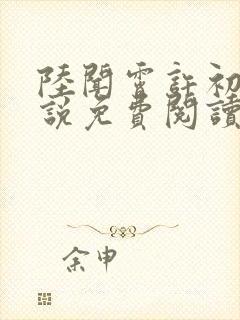 陸聞霄許初
說免費閱讀
余申